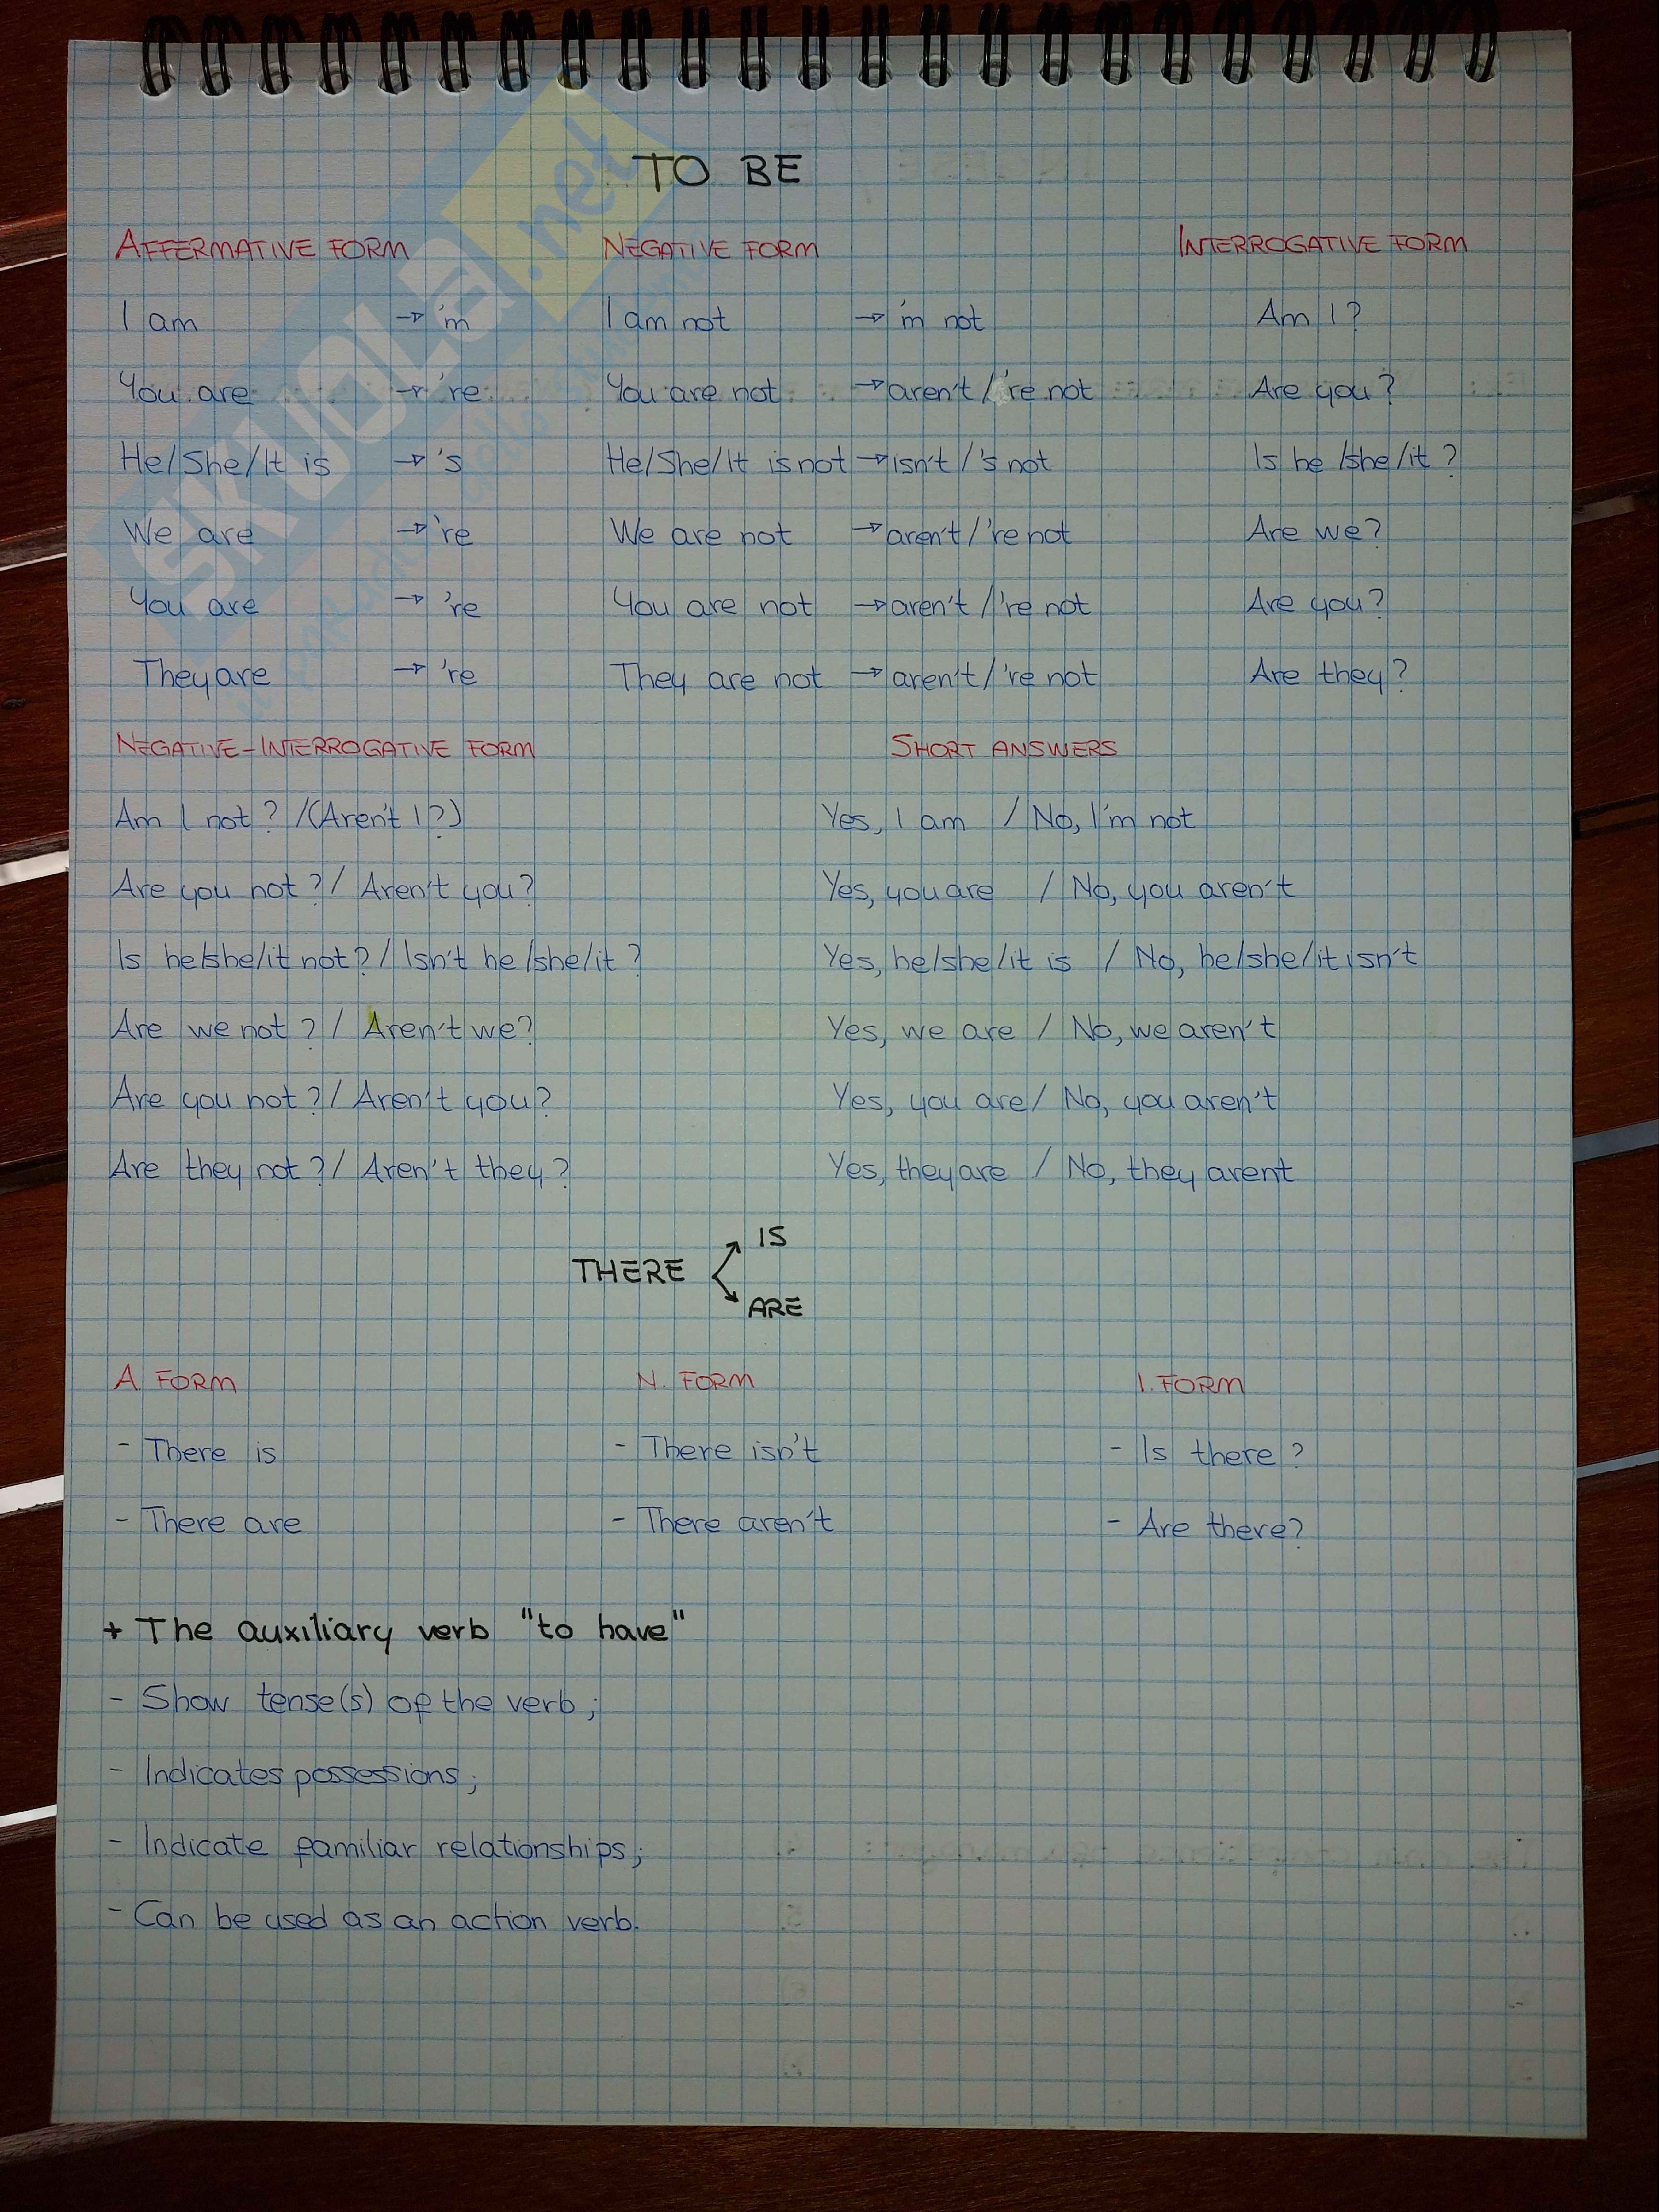 TO BE
AFFERMATIVE FORM NEGATIVE FORM INTERROGATIVE FORM
I am → 'm I am not → 'm not Am I?
You are → 're You are not → aren't / 're not Are you?
He/She/It is → 's He/She/It is not → isn't / 's not Is he/she/it?
We are → 're We are not → aren't / 're not Are we?
You are → 're You are not → aren't / 're not Are you?
They are → 're They are not → aren't / 're not Are they?
NEGATIVE-INTERROGATIVE FORM SHORT ANSWERS
Am I not? /(Aren't I?) Yes, I am / No, I'm not
Are you not? / Aren't you? Yes, you are / No, you aren't
Is he/she/it not? / Isn't he/she/it? Yes, he/she/it is / No, he/she/it isn't
Are we not? / Aren't we? Yes, we are / No, we aren't
Are you not? / Aren't you? Yes, you are / No, you aren't
Are they not? / Aren't they? Yes, they are / No, they arent
IS
THERE
ARE
A. FORM N. FORM I. FORM
- There is - There isn't - Is there?
- There are - There aren't - Are there?
+ The auxiliary verb "to have"
- Show tense(s) of the verb;
- Indicates possessions;
- Indicate familiar relationships;
- Can be used as an action verb.
SKUOLA.net